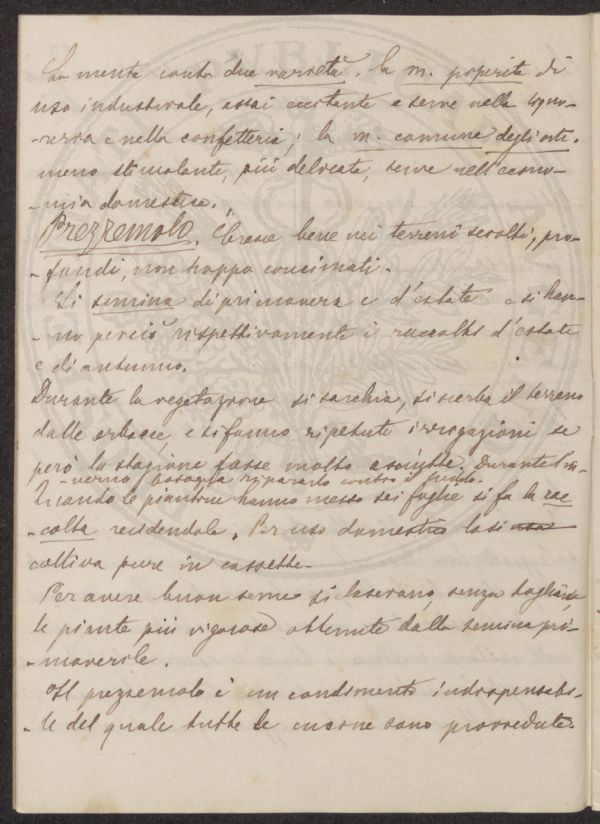 La menta conta due varietà. la m. peperite di
uso industriale, assai eccitante e serve nella liquo-
-reria e nella confetteria; la m. comune degli orti.
meno stimolante, più delicata, serve nell'econo-
-mia domestica.
Prezzemolo. Cresce bene nei terreni sciolti, pro-
-fondi, non troppo concimati.
Si semina di primavera e d'estate e si han-
-no perciò rispettivamente i raccolti d'estate
e di autunno.
Durante la vegetazione si sarchia, si scerba il terreno
dalle erbacce, e si fanno ripetute irrigazioni se
però la stagione fosse molto asciutta. Durante l'in-
-verno bisogna ripararlo contro il freddo.
Quando le piantine hanno messo sei foglie si fa la rac-
-colta recidendole. Per uso domestico lo si usa
coltiva pure in cassette.
Per avere buon seme si lasciano, senza tagliarle
le piante più vigorose ottenute dalla semina pri-
-maverile.
Il prezzemolo è un condimento indispensabi-
-le del quale tutte le cucine sono provvedute.